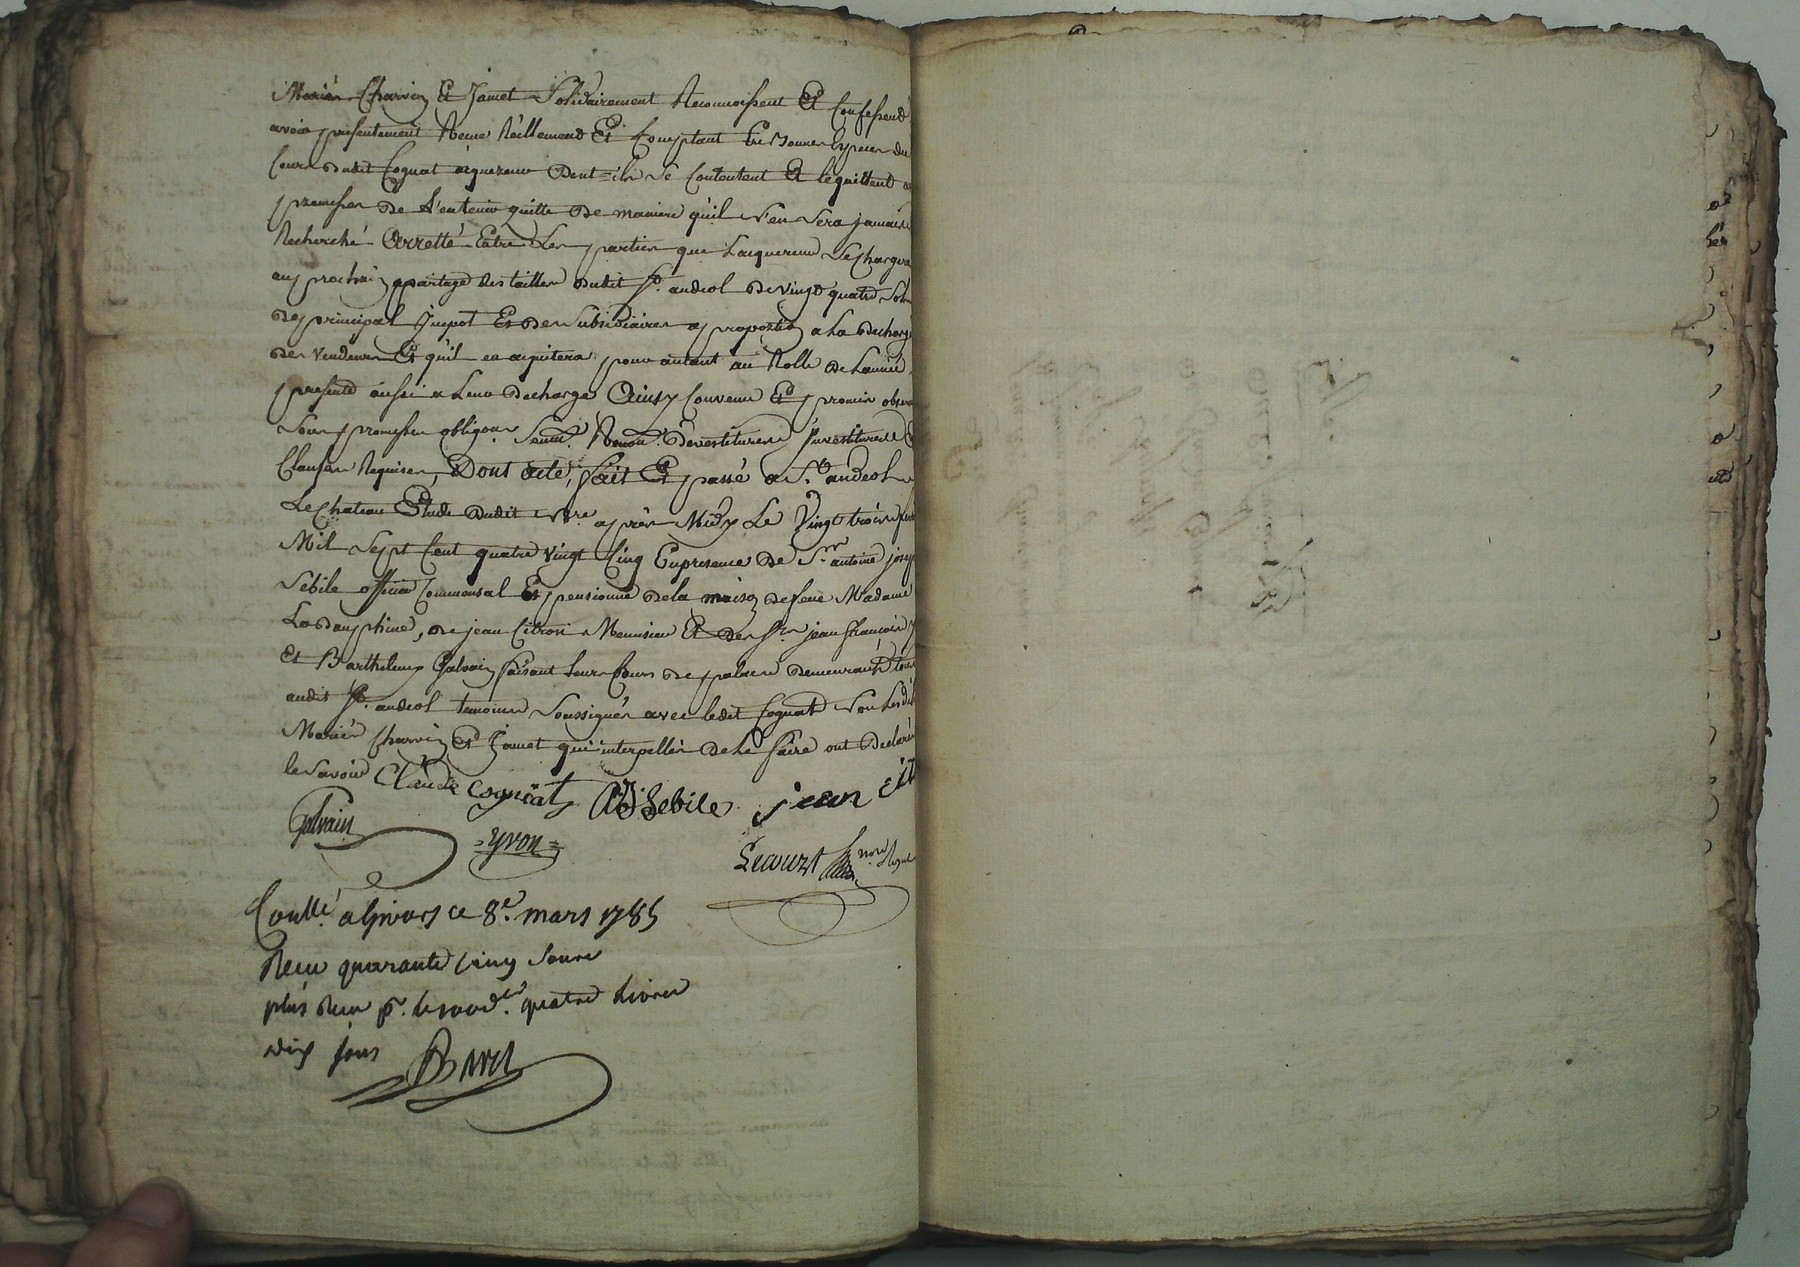 Mariés Charvin Et Jamet Solidairement Reconnoissent Et Confessent
avoir presentement Receu Réellement Et Comptant En Bonnes Especes du
Cours dudit Cognat acquereur Dont ils Se Contentent Et lequittent
promesse de S'entenir quitte de maniere quil N'en Sera jamais
Recherché Arretté Entre Les parties que Lacquereur Se Chargera
au prochain partage des tailles dudit St. andeol de vingt quatre Sols
de principal Impot Et des Subsidiaires a proportion a La decharge
des Vendeurs Et quil en acquitera pour autant au Rolle de Lannée
presente aussi a Leur decharge Ainsy Convenu Et promis observer
Sous promesses obligaon. Soum. Renon. Devestitures Investitures
Clauses Requises, Dont acte, fait Et passé a St. andeol
Le Chateau Etude dudit Nre. après Midy Le Vingt trois
Mil Sept Cent quatre vingt Cinq En presence de Sr. antoine joseph
Sebile officier Commensal Et pensionné de la maison de feue Madame
La dauphine, de jean Citron Menuisier Et des Srs. jean françois
Et Barthelemy Galvain faisant Leurs Cours de demeurants tous
audit St. andeol temoins Soussignés avec ledit Cognat Non Lesdits
Mariés Charvin Et Jamet qui interpellés de Le faire ont Declaré
le Savoir Claude Cognat AJ Sebile jean Cit
Galvain yvon Lecourt nore.
Conllé. a Givors ce 8e. mars 1785
Receu quarante cinq Sous
plus Receu pr. quatre Livres
dix sous